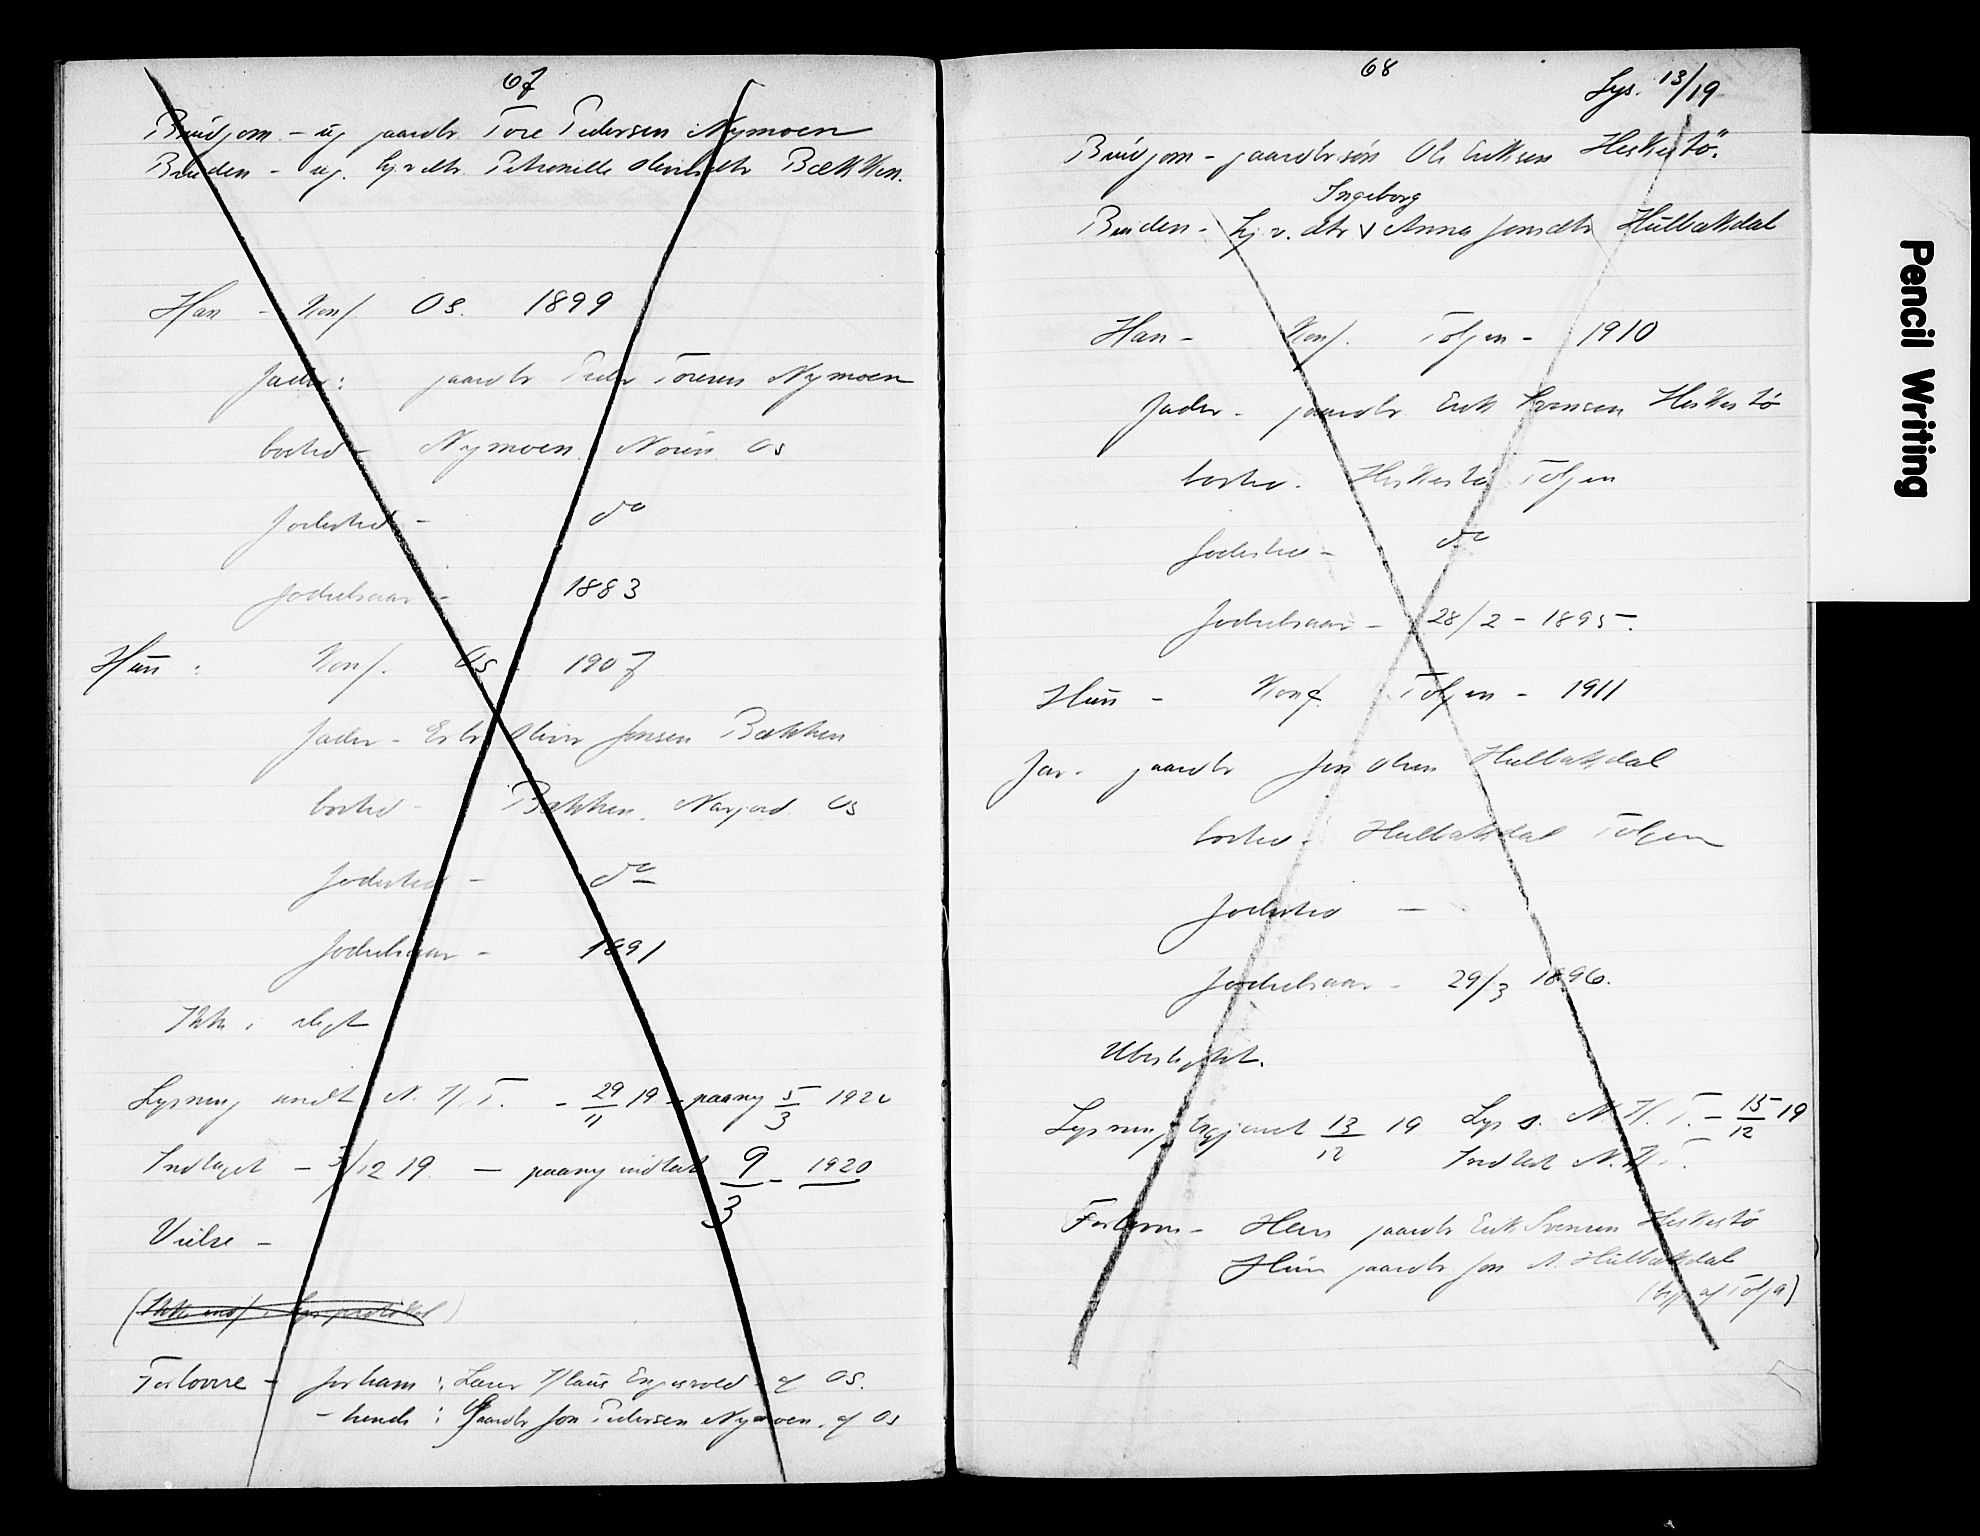 67
Brudgom - ug gaardbr. Tore Pedersen Nymoen
Bruden - ug. hjv. dtr. Petronille Olivsdtr Bækken.
Han - Konf. Os. 1899
Fader: gaardbr Peder Toresen Nymoen
bosted - Nymoen Os
Fødested - do
Fødselsaar - 1883
Hun : Konf. Os 1907
Fader - Oliver Jonsen Bækken
bosted - Bækken. Narjord Os
Fødested - do
Fødselsaar - 1891
Ikke i slegt
Lysning indt N. H. T. - 29/11 19 - paany 5/3 1920
Indtaget - 3/12 19 - paany indtat 9/3 - 1920
Vielse -
(Ikke indf. i lys protokol)
Forlovere - for ham : Klaus Engesvold af Os.
- hende : Gaardbr Jon Pedersen Nymoen. af Os
68
Lys. 13/19
Brudgom - gaardbrsøn Ole Eriksen Heskestø.
Ingeborg
Bruden - hj.v. dtr v Anna Jonsdtr Hulbakdal
Han - Konf. Tolgen - 1910
Fader - gaardbr Erik Svensen Heskestø
bosted. Heskestø Tolgen
Fødested - do
Fødselsaar - 28/2 - 1895.
Hun - Konf Tolgen - 1911
Far - gaardbr Jon Olsen Hulbakdal
bosted - Hulbakdal Tolgen
Fødested -
Fødselsaar - 29/3 1896.
Ubeslegtet.
Lysning begjæret 13/12 19 Lys s. N. H. T. - 15/12 19
Indtat N. H. T.
Forlovere - Hans gaardbr Erik Svensen Heskestø
Hun gaardbr Jon O. Hulbakdal
(begge af Tolga)
Pencil Writing